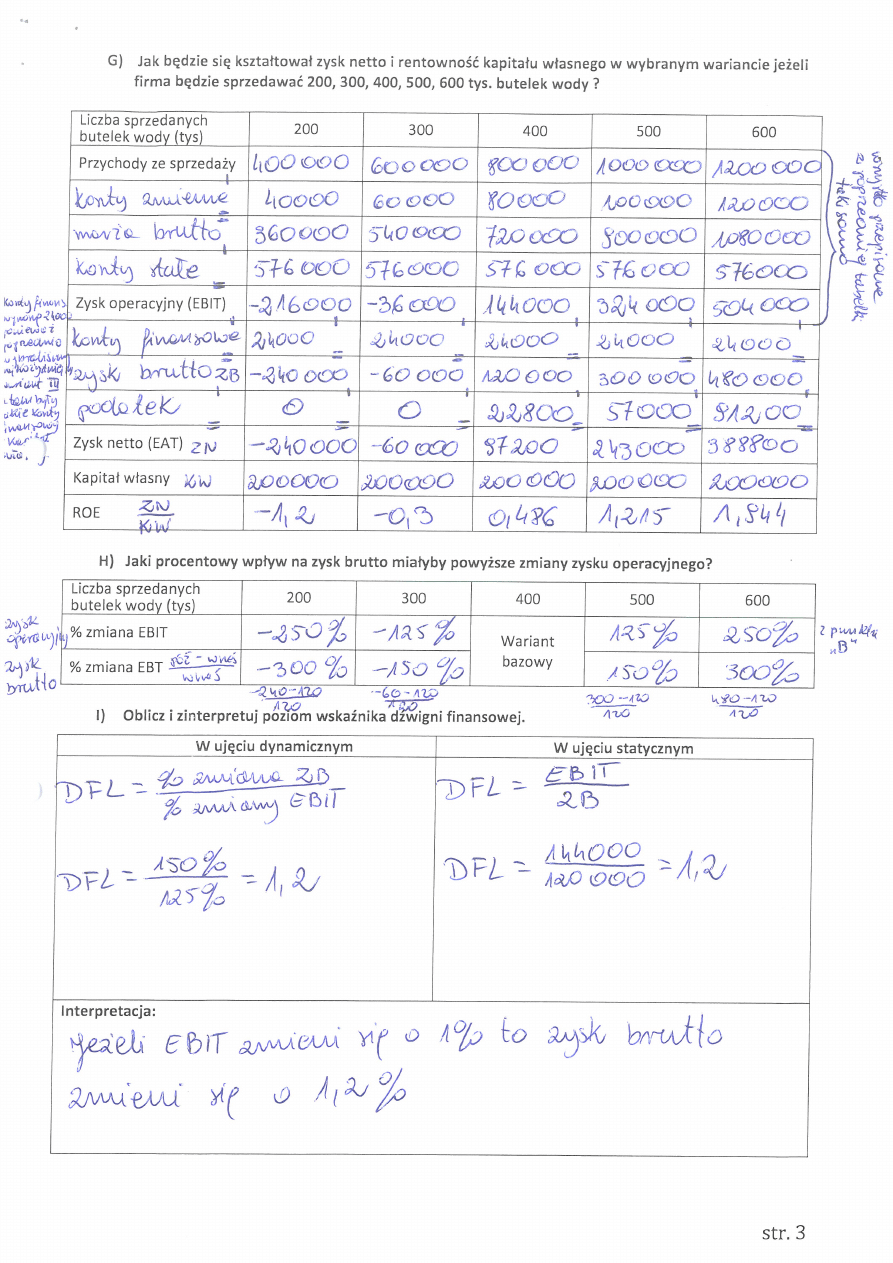 G) Jak będzie się kształtował zysk netto i rentowność kapitału własnego w wybranym wariancie jeżeli
firma będzie sprzedawać 200, 300, 400, 500, 600 tys. butelek wody ?
Liczba sprzedanych butelek wody (tys) 200 300 400 500 600
Przychody ze sprzedaży 400 000 600 000 800 000 1000 000 1200 000
konty zmienne 40000 60 000 80000 100000 120 000
marża brutto 360 000 540 000 720 000 900 000 1080 000
konty stałe 576 000 576 000 576 000 576 000 576000
Zysk operacyjny (EBIT) -216000 -36 000 144 000 324 000 504 000
konty finansowe 24000 24000 24000 24000 24000
zysk brutto ZB -240 000 -60 000 120 000 300 000 480 000
podatek 0 0 22800 57000 912,00
Zysk netto (EAT) ZN -240 000 -60 000 97 200 243 000 388800
Kapitał własny KW 200000 200000 200 000 200000 200000
ROE ZN/KW -1,2 -0,3 0,486 1,215 1,944
wszystko przepisane
z poprzedniej tabelki
taki samo
H) Jaki procentowy wpływ na zysk brutto miałyby powyższe zmiany zysku operacyjnego?
Liczba sprzedanych butelek wody (tys) 200 300 400 500 600
zysk operacyjny % zmiana EBIT -250% -125% Wariant bazowy 125% 250% z punktu „B"
zysk brutto % zmiana EBT -300% -150% 150% 300%
-240-120/120 -60-120/120 300-120/120 480-120/120
I) Oblicz i zinterpretuj poziom wskaźnika dźwigni finansowej.
W ujęciu dynamicznym W ujęciu statycznym
DFL = % zmiana ZB / % zmiany EBIT DFL = EBIT / ZB
DFL = 150% / 125% = 1,2 DFL = 144000 / 120 000 = 1,2
Interpretacja:
Jeżeli EBIT zmieni się o 1% to zysk brutto
zmieni się o 1,2%
str. 3